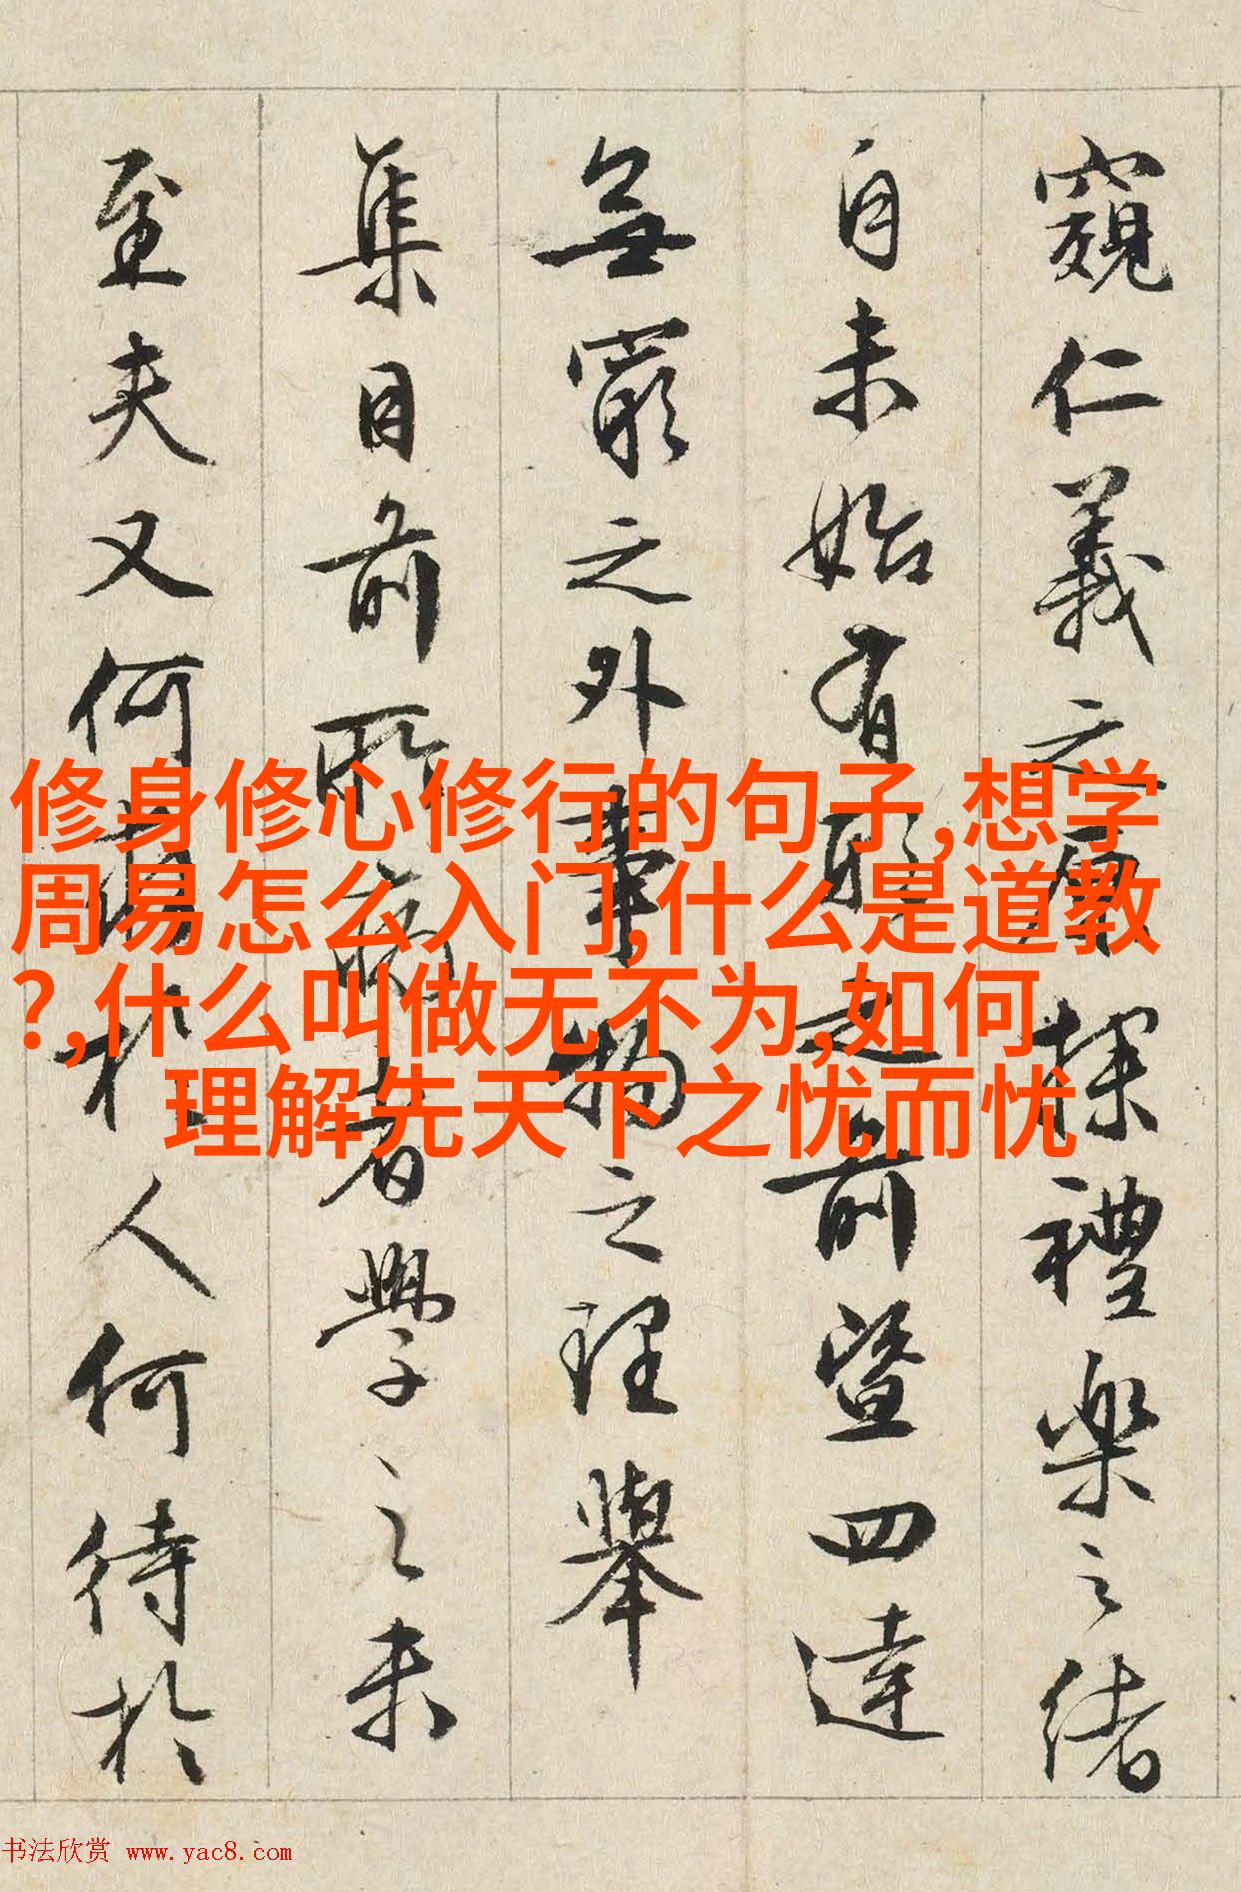 窺仁義之原探禮樂之緒
自未始有形之前暨四達
無窮之外事物之理舉
集目前所病者學之未
至夫又何於人何待於
修身修心修行的句子,想学
周易怎么入门,什么是道教
?,什么叫做无不为,如何
理解先天下之忧而忧
书法欣赏 www.yac8.com